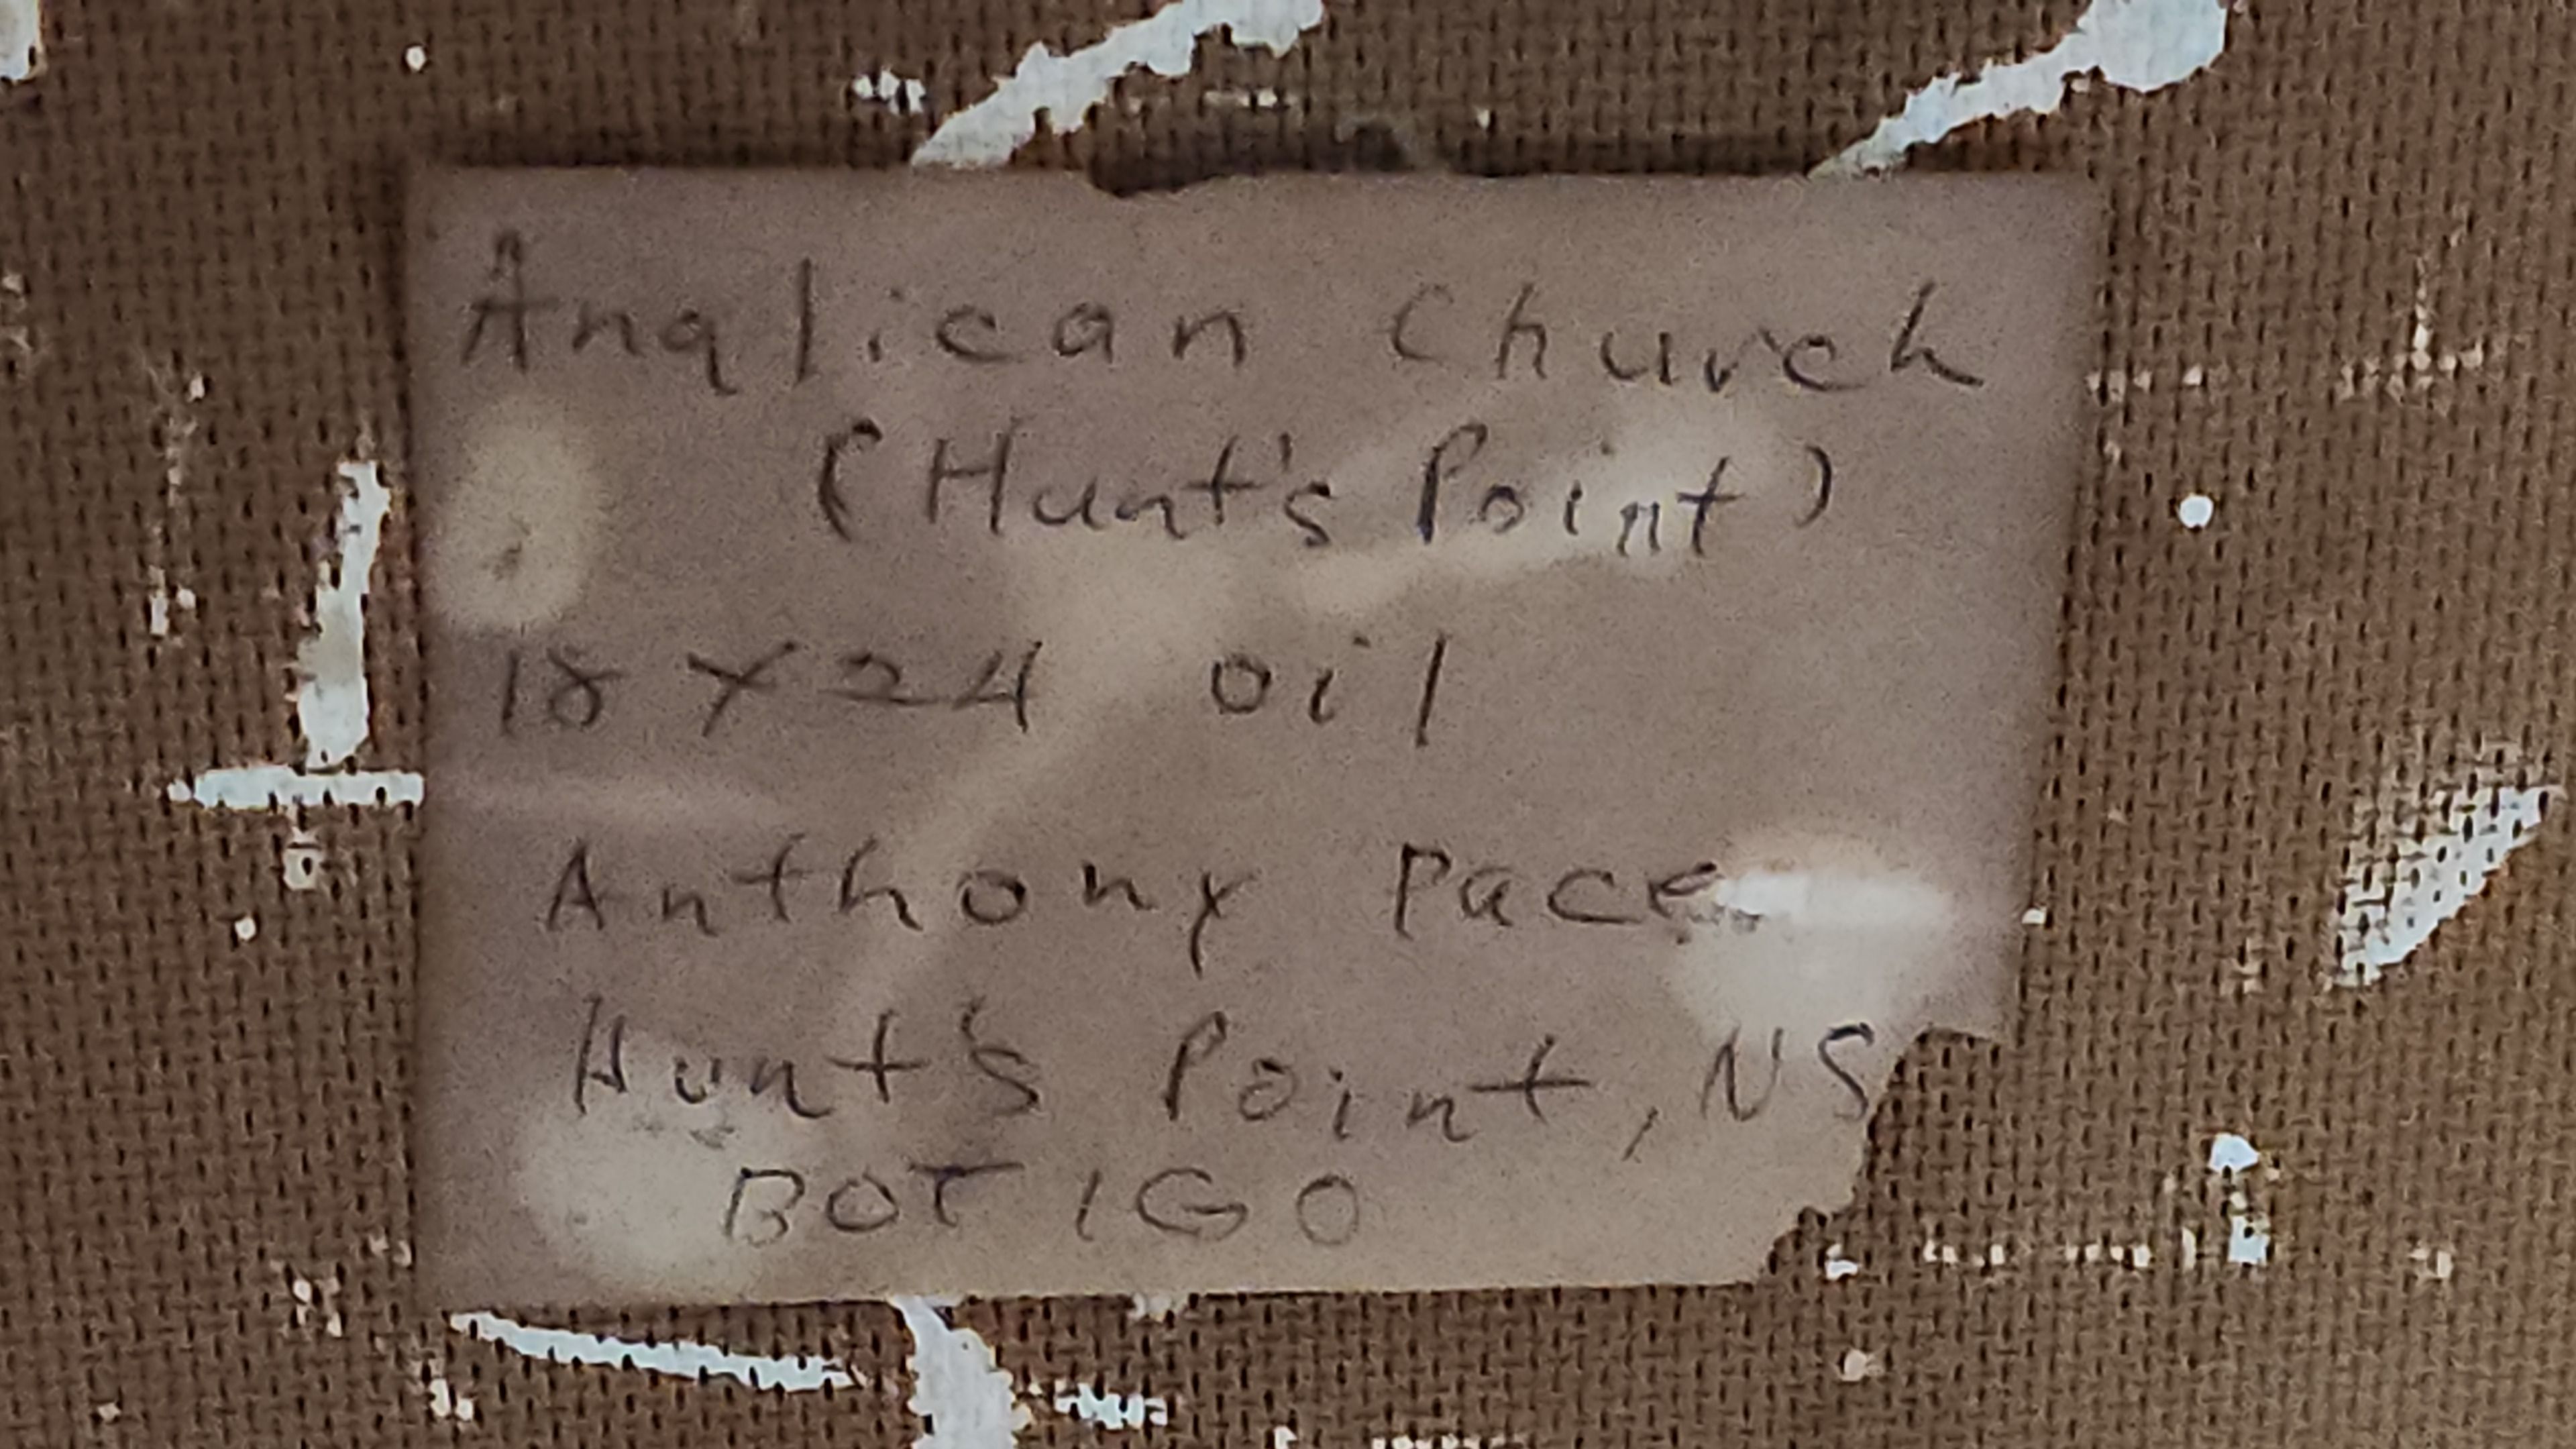 Anglican Church
(Hunt's Point)
18 x 24 oil
Anthony Pace
Hunt's Point, NS
BOT 1G0